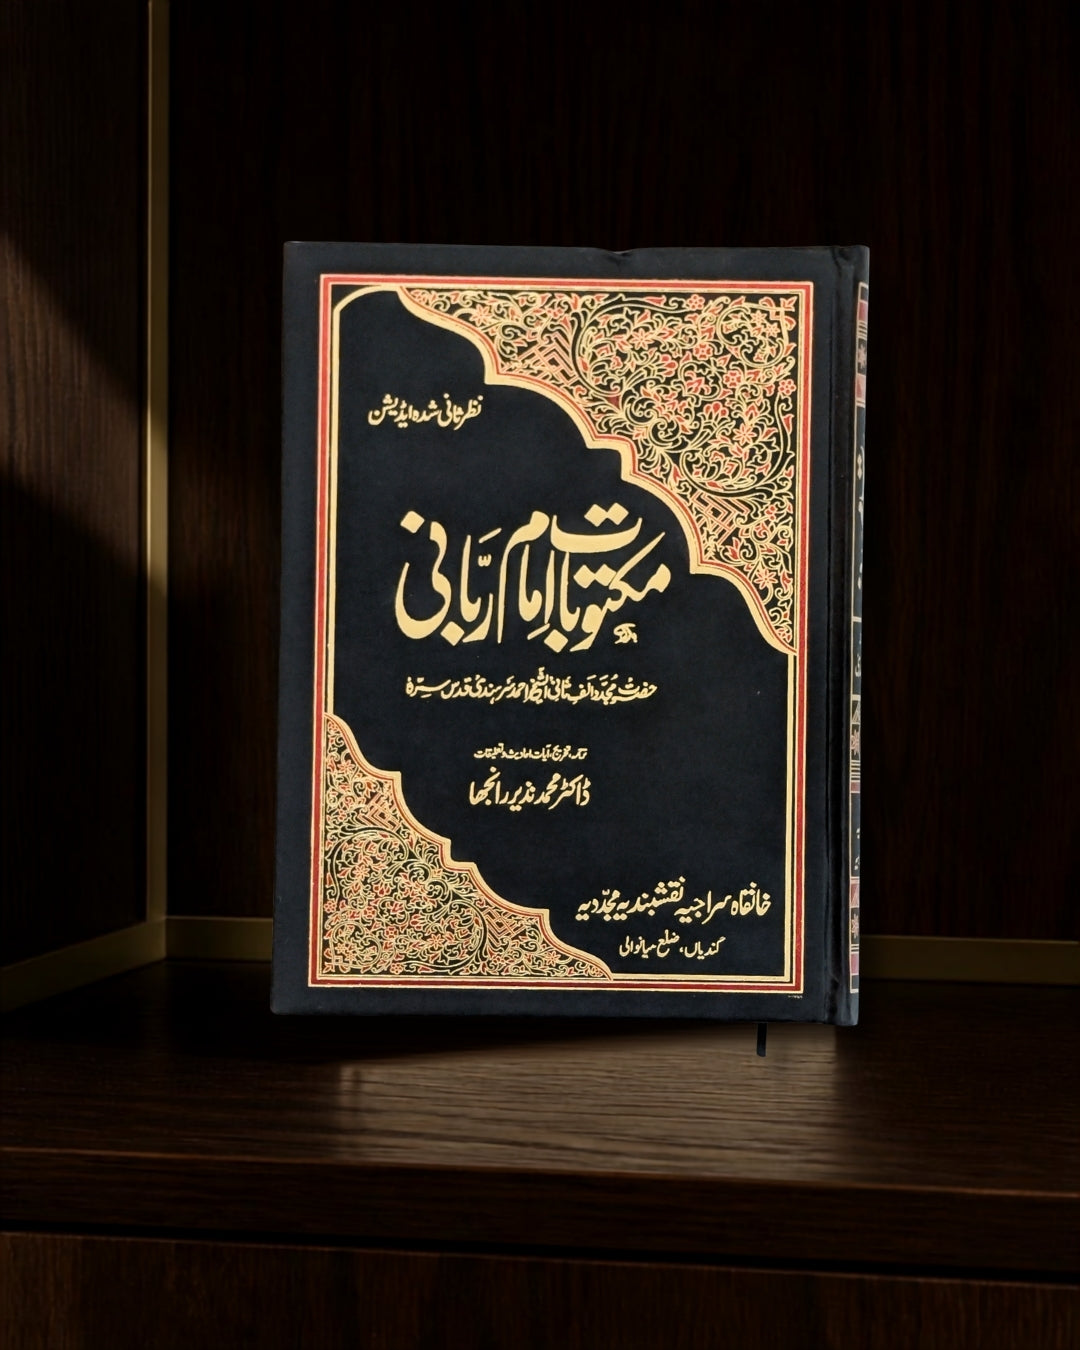 نظر ثانی شدہ ایڈیشن
مکتوبات امام ربّانی
حضرت مجدّد الف ثانی الشیخ احمد سرہندی قدس سرہٗ
ترجمہ، تخریج، آیات، احادیث و تعلیقات
ڈاکٹر محمد نذیر رانجھا
خانقاہ سراجیہ نقشبندیہ مجدّدیہ
کندیاں، ضلع میانوالی